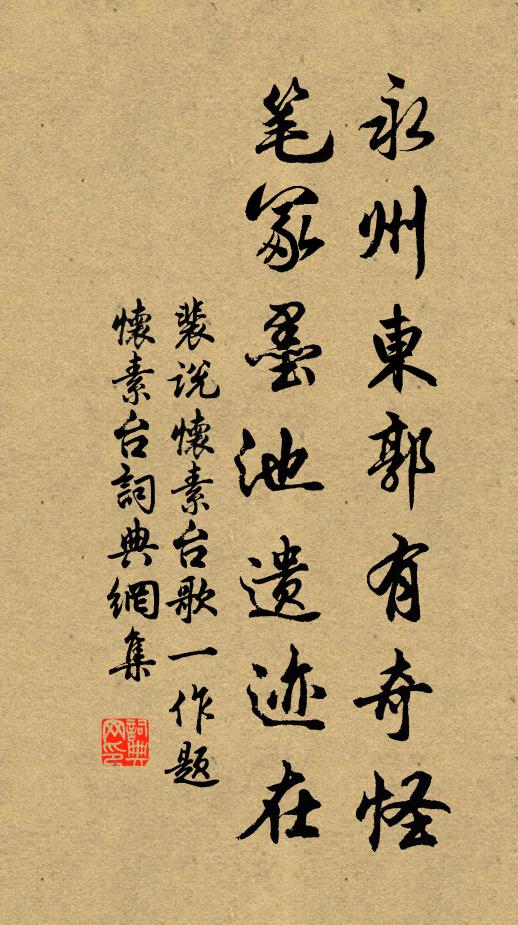 永州東郭有奇怪
笔冢墨池遗迹在
裴说懷素台歌一作題
懷素台詞典網集
詞典
网印